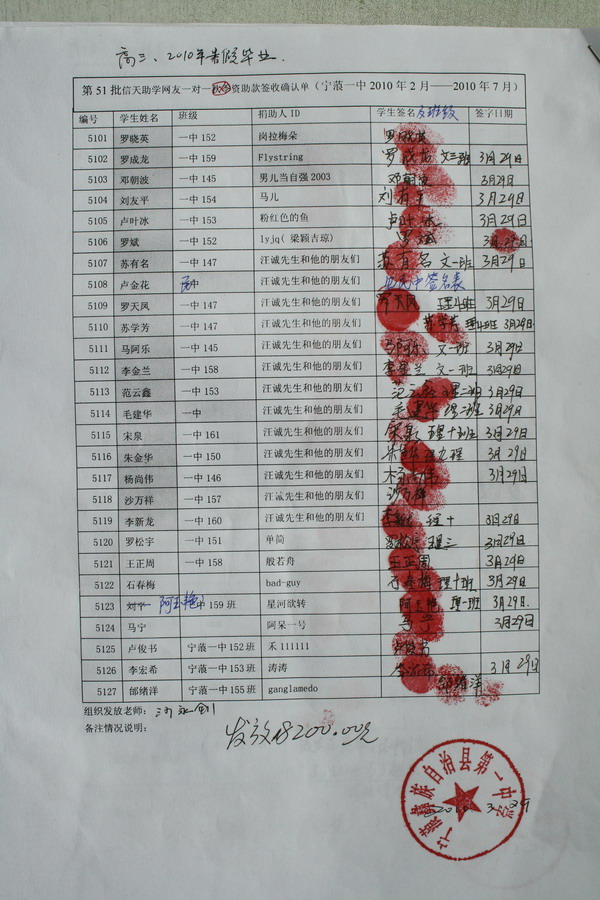 高三、2010年暑假毕业.
第 51 批信天助学网友一对一秋季资助款签收确认单（宁蒗一中 2010 年 2 月——2010 年 7 月）
编号 学生姓名 班级 捐助人 ID 学生签名及班级 签字日期
5101 罗晓英 一中 152 岗拉梅朵
5102 罗成龙 一中 159 Flystring 罗成龙 文三班 3月29日
5103 邓朝波 一中 145 男儿当自强 2003 邓朝波 3月29日
5104 刘友平 一中 154 马儿 3月29日
5105 卢叶冰 一中 153 粉红色的鱼 卢叶冰 3月29日
5106 罗斌 一中 152 lyjq( 梁颖吉琼) 罗斌 3月29日
5107 苏有名 一中 147 汪诚先生和他的朋友们 苏有名 文一班 3月29日
5108 卢金花 民中 汪诚先生和他的朋友们 签名表
5109 罗天凤 一中 147 汪诚先生和他的朋友们 罗天凤 3月29日
5110 苏学芳 一中 147 汪诚先生和他的朋友们 苏学芳 3月29日
5111 马阿乐 一中 145 汪诚先生和他的朋友们 马阿乐 文一班 3月29日
5112 李金兰 一中 158 汪诚先生和他的朋友们 李金兰 文一班 3月29日
5113 范云鑫 一中 153 汪诚先生和他的朋友们 范云鑫 理二班 3月29日
5114 毛建华 一中 汪诚先生和他的朋友们 毛建华 理二班 3月29日
5115 宋泉 一中 161 汪诚先生和他的朋友们 宋泉 理十班 3月29日
5116 朱金华 一中 150 汪诚先生和他的朋友们 朱金华 3月29日
5117 杨尚伟 一中 146 汪诚先生和他的朋友们 杨尚伟 3月29日
5118 沙万祥 一中 157 汪诚先生和他的朋友们 沙万祥
5119 李新龙 一中 160 汪诚先生和他的朋友们 李新龙 理十 3月29日
5120 罗松宇 一中 151 单简 罗松宇 理三 3月29日
5121 王正周 一中 158 般若舟 王正周 3月29日
5122 石春梅 bad-guy 石春梅 理十班 3月29日
5123 阿玉艳 一中 159 班 星河欣转 阿玉艳 理一班 3月29日.
5124 马宁 阿呆一号 马宁 3月29日
5125 卢俊书 宁蒗一中 152 班 禾 111111 卢俊书
5126 李宏希 宁蒗一中 153 班 涛涛 李宏希 3月29日
5127 邰绪洋 宁蒗一中 155 班 ganglamedo 邰绪洋
组织发放老师：
备注情况说明： 发放18200.00元
宁蒗彝族自治县第一中学